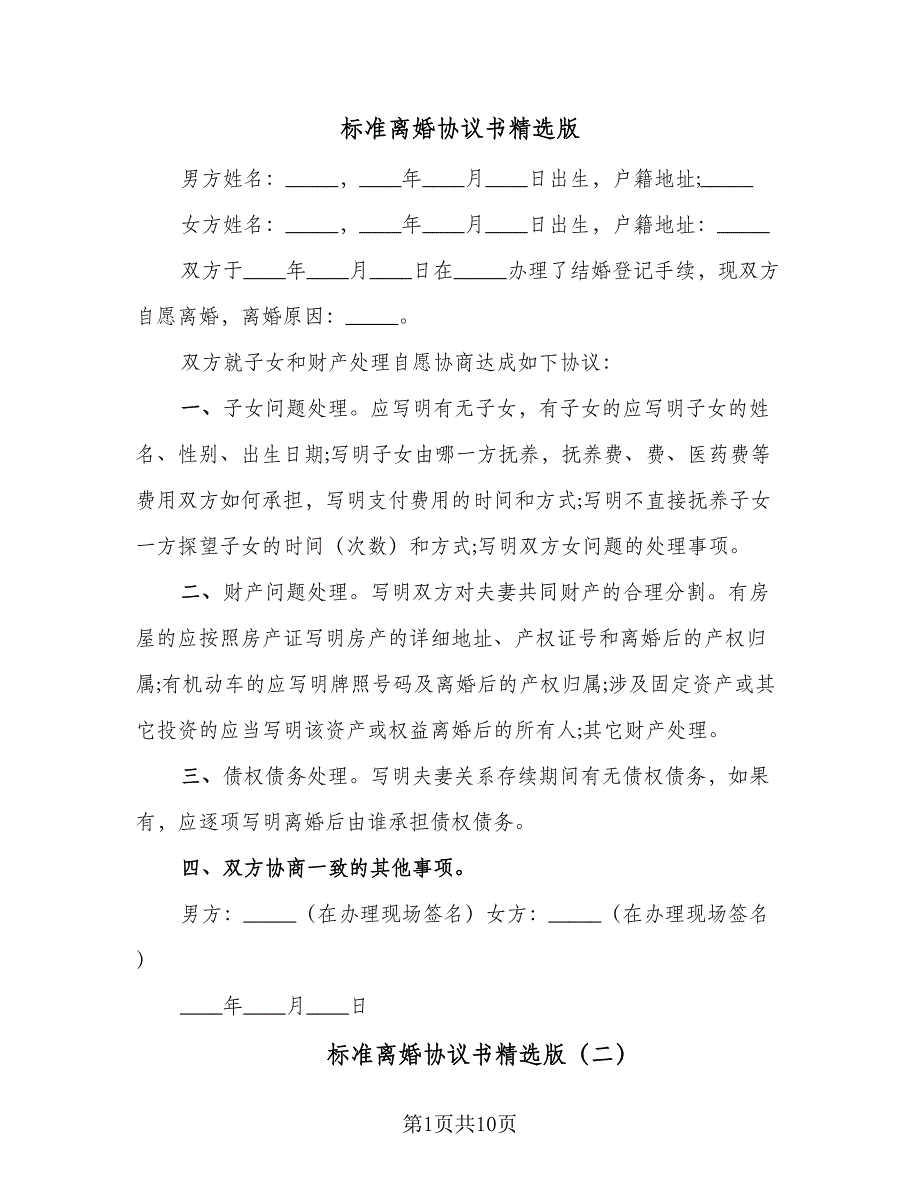 标准离婚协议书精选版
男方姓名：_____，____年____月____日出生，户籍地址;_____
女方姓名：_____，____年____月____日出生，户籍地址：_____
双方于____年____月____日在_____办理了结婚登记手续，现双方
自愿离婚，离婚原因：_____。
双方就子女和财产处理自愿协商达成如下协议：
一、子女问题处理。应写明有无子女，有子女的应写明子女的姓
名、性别、出生日期;写明子女由哪一方抚养，抚养费、费、医药费等
费用双方如何承担，写明支付费用的时间和方式;写明不直接抚养子女
一方探望子女的时间（次数）和方式;写明双方女问题的处理事项。
二、财产问题处理。写明双方对夫妻共同财产的合理分割。有房
屋的应按照房产证写明房产的详细地址、产权证号和离婚后的产权归
属;有机动车的应写明牌照号码及离婚后的产权归属;涉及固定资产或其
它投资的应当写明该资产或权益离婚后的所有人;其它财产处理。
三、债权债务处理。写明夫妻关系存续期间有无债权债务，如果
有，应逐项写明离婚后由谁承担债权债务。
四、双方协商一致的其他事项。
男方：_____（在办理现场签名）女方：_____（在办理现场签名
）
____年____月____日
标准离婚协议书精选版（二）
第1页共10页